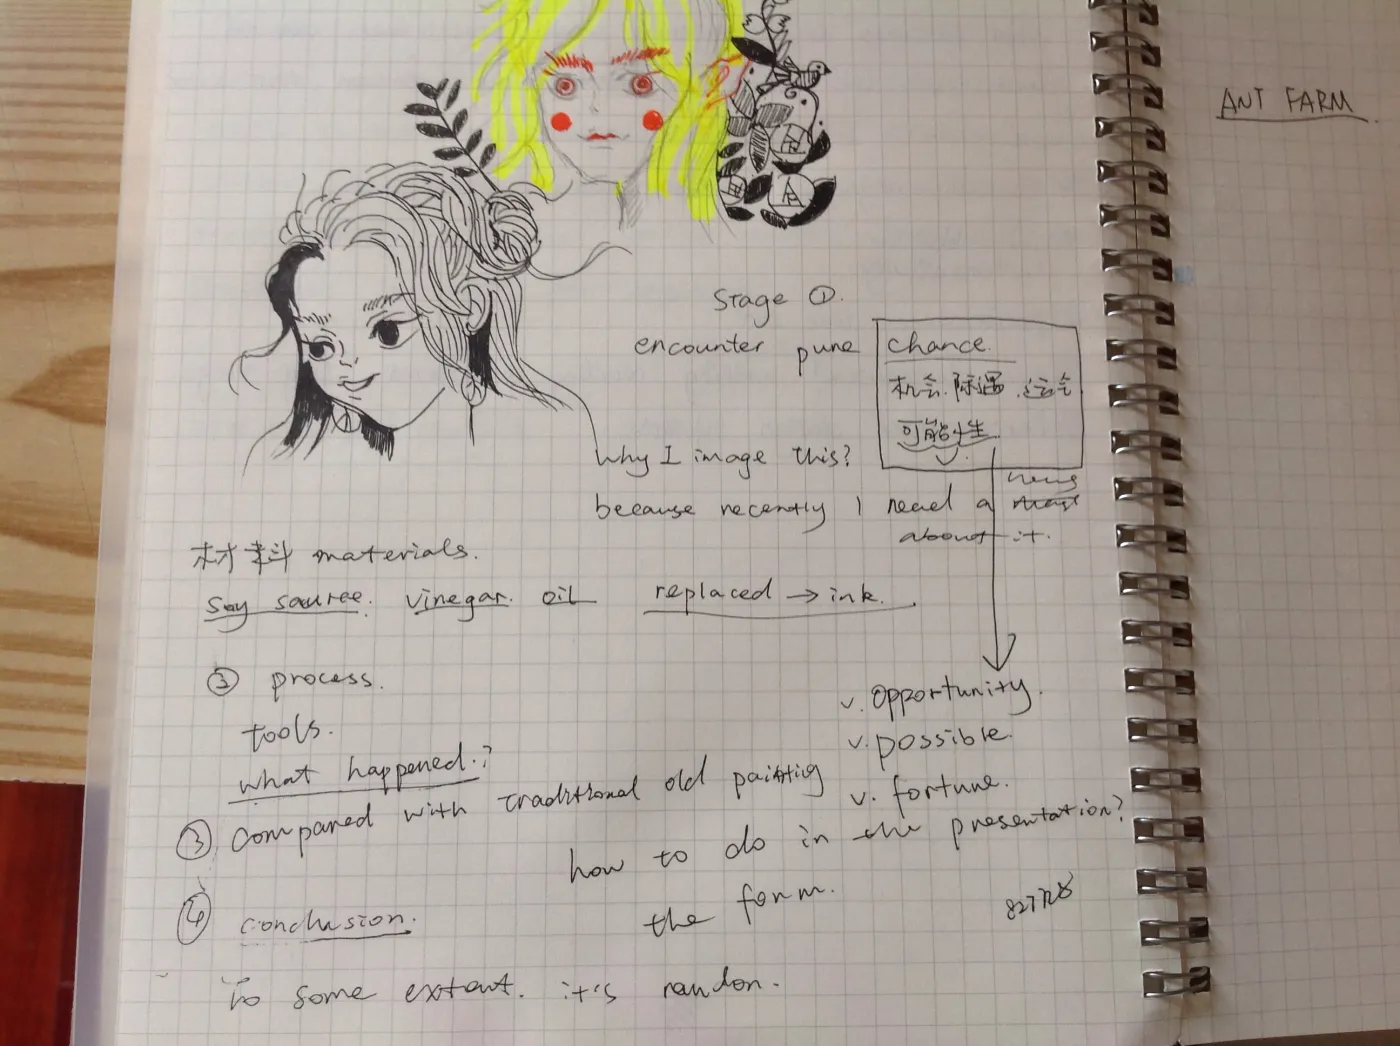 ANT FARM
Stage ①.
encounter pune chance.
机会.际遇.运气
可能性
Why I image this?
because recently I read a news
about it.
材料 materials.
Soy sauree. vinegar. oil replaced → ink.
② process.
tools.
what happened.?
v. opportunity.
v. possible.
v. fortune.
③ compared with traditional old painting
how to do in the presentation?
the form.
④ conclusion.
To some extent. it's randon.